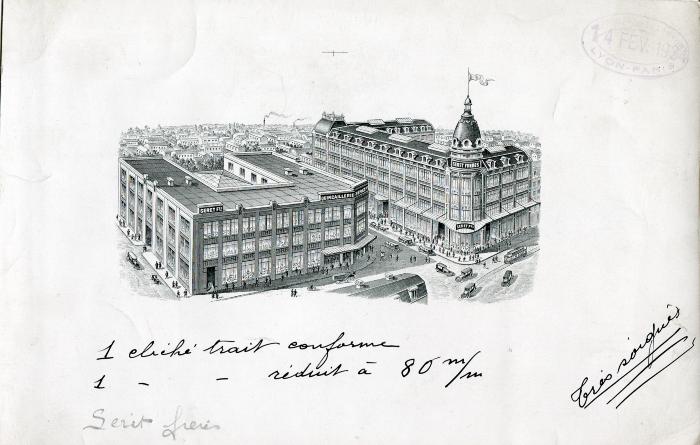 14 FEV. 192
LYON-PARIS
SERET FRERES
SERET Fes
QUINCAILLERIE
SERET Fes
1 cliché trait conforme
1 - - réduit à 80 m/m
très soigné
Seret frères